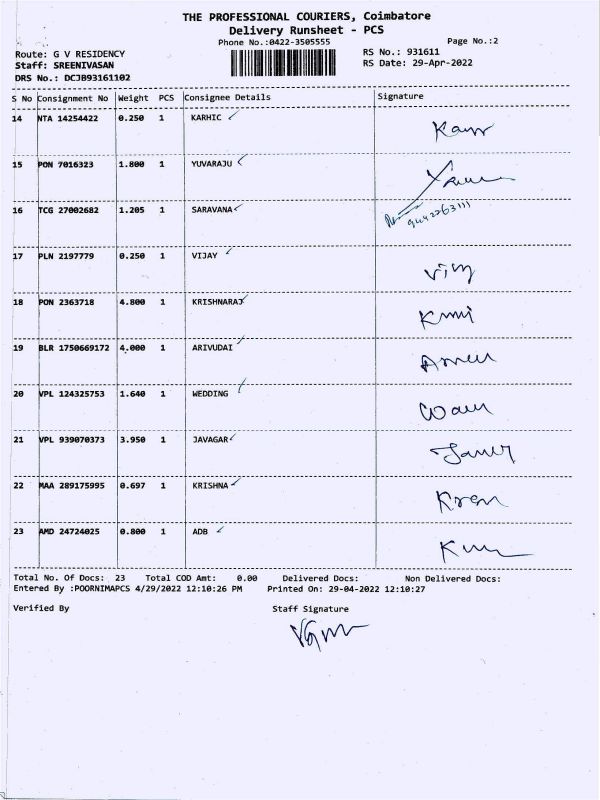 THE PROFESSIONAL COURIERS, Coimbatore
Delivery Runsheet - PCS
Phone No.:0422-3505555 Page No.:2
Route: G V RESIDENCY RS No.: 931611
Staff: SREENIVASAN RS Date: 29-Apr-2022
DRS No.: DCJ893161102
S No Consignment No Weight PCS Consignee Details Signature
14 NTA 14254422 0.250 1 KARHIC
15 PON 7016323 1.800 1 YUVARAJU
16 TCG 27002682 1.205 1 SARAVANA
17 PLN 2197779 0.250 1 VIJAY
18 PON 2363718 4.800 1 KRISHNARAJ
19 BLR 1750669172 4.000 1 ARIVUDAI
20 VPL 124325753 1.640 1 WEDDING
21 VPL 939070373 3.950 1 JAVAGAR
22 MAA 289175995 0.697 1 KRISHNA
23 AMD 24724025 0.800 1 ADB
Total No. Of Docs: 23 Total COD Amt: 0.00 Delivered Docs: Non Delivered Docs:
Entered By :POORNIMAPCS 4/29/2022 12:10:26 PM Printed On: 29-04-2022 12:10:27
Verified By Staff Signature